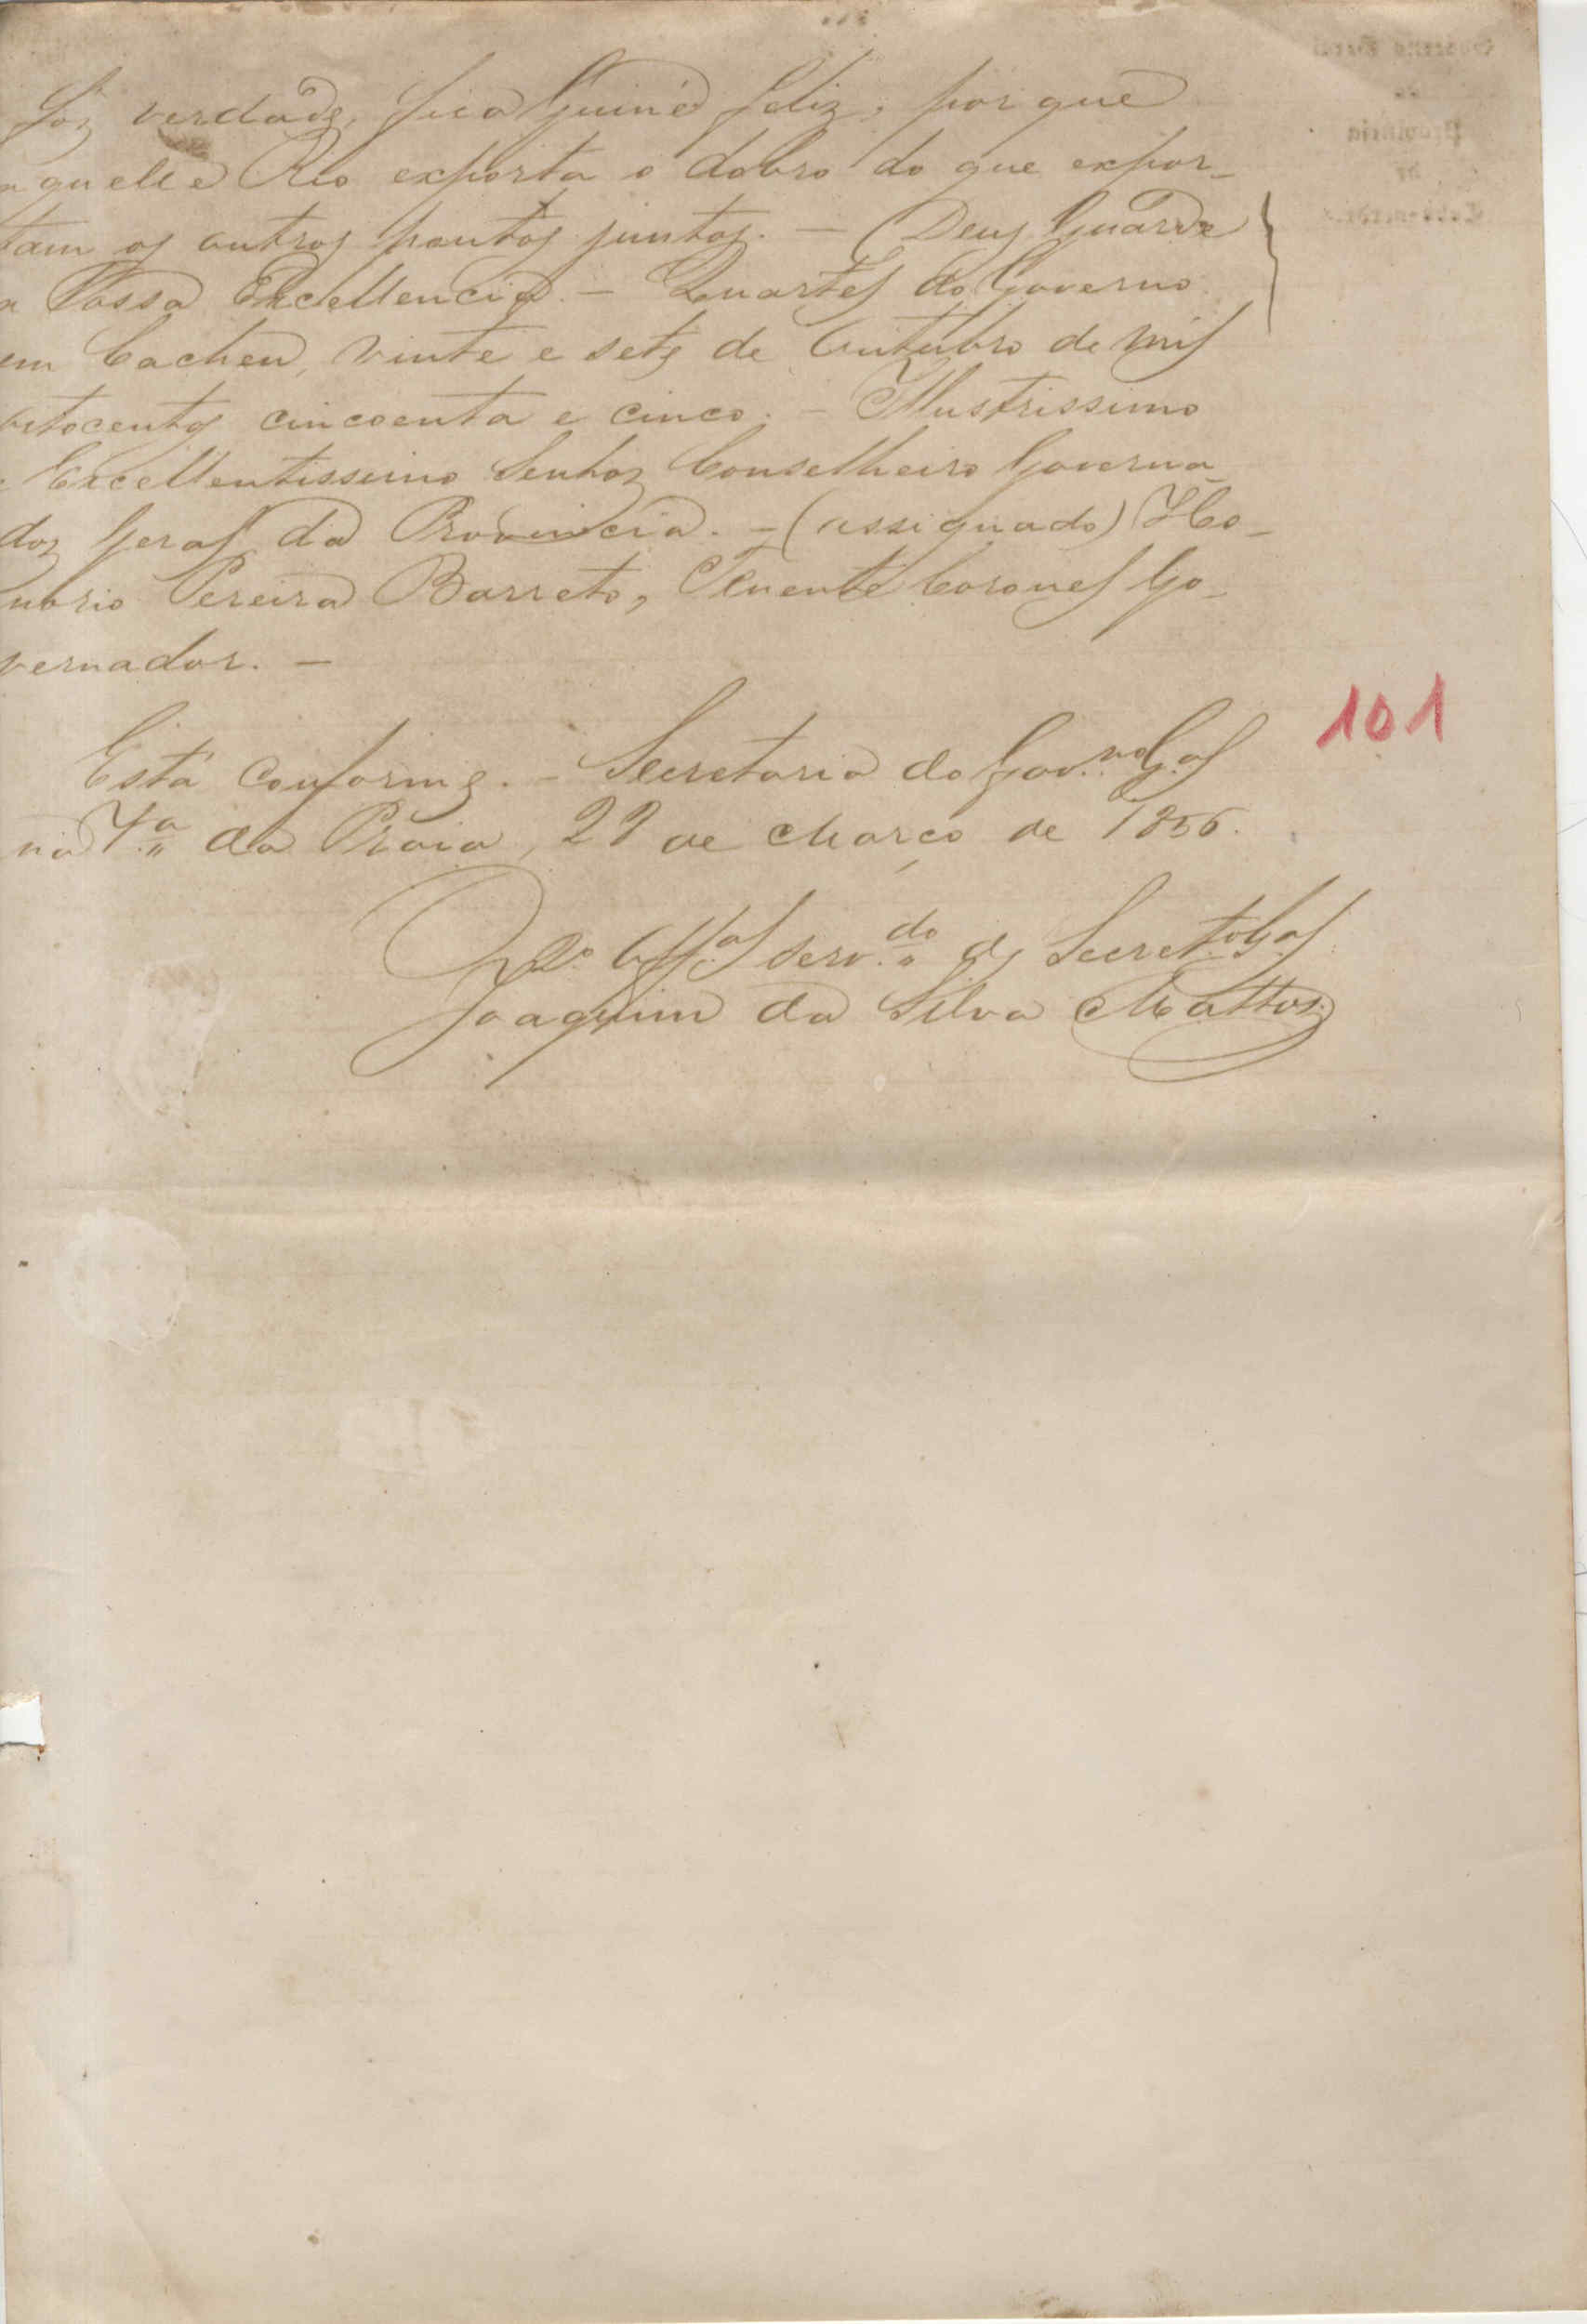 for verdade, fica Guiné feliz; por que
aquelle Rio exporta o dobro do que expor-
tam os outros pontos juntos. — Deus Guarde
a Vossa Excellencia. — Quartel do Governo
em Cacheu, vinte e sete de Outubro de mil
oitocentos cincoenta e cinco. — Illustrissimo
e Excellentissimo Senhor Conselheiro Governa-
dor Geral da Provincia. — (assignado) Ho-
norio Pereira Barreto, Tenente Coronel Go-
vernador. —
101
Está Conforme. — Secretaria do Gov.no G.al
na V.a da Praia, de Março de 1856.
Off.al serv.do de Secret.o G.al
Joaquim da Silva Mattos
Governo Geral
da
Provincia
de
Cabo-verde